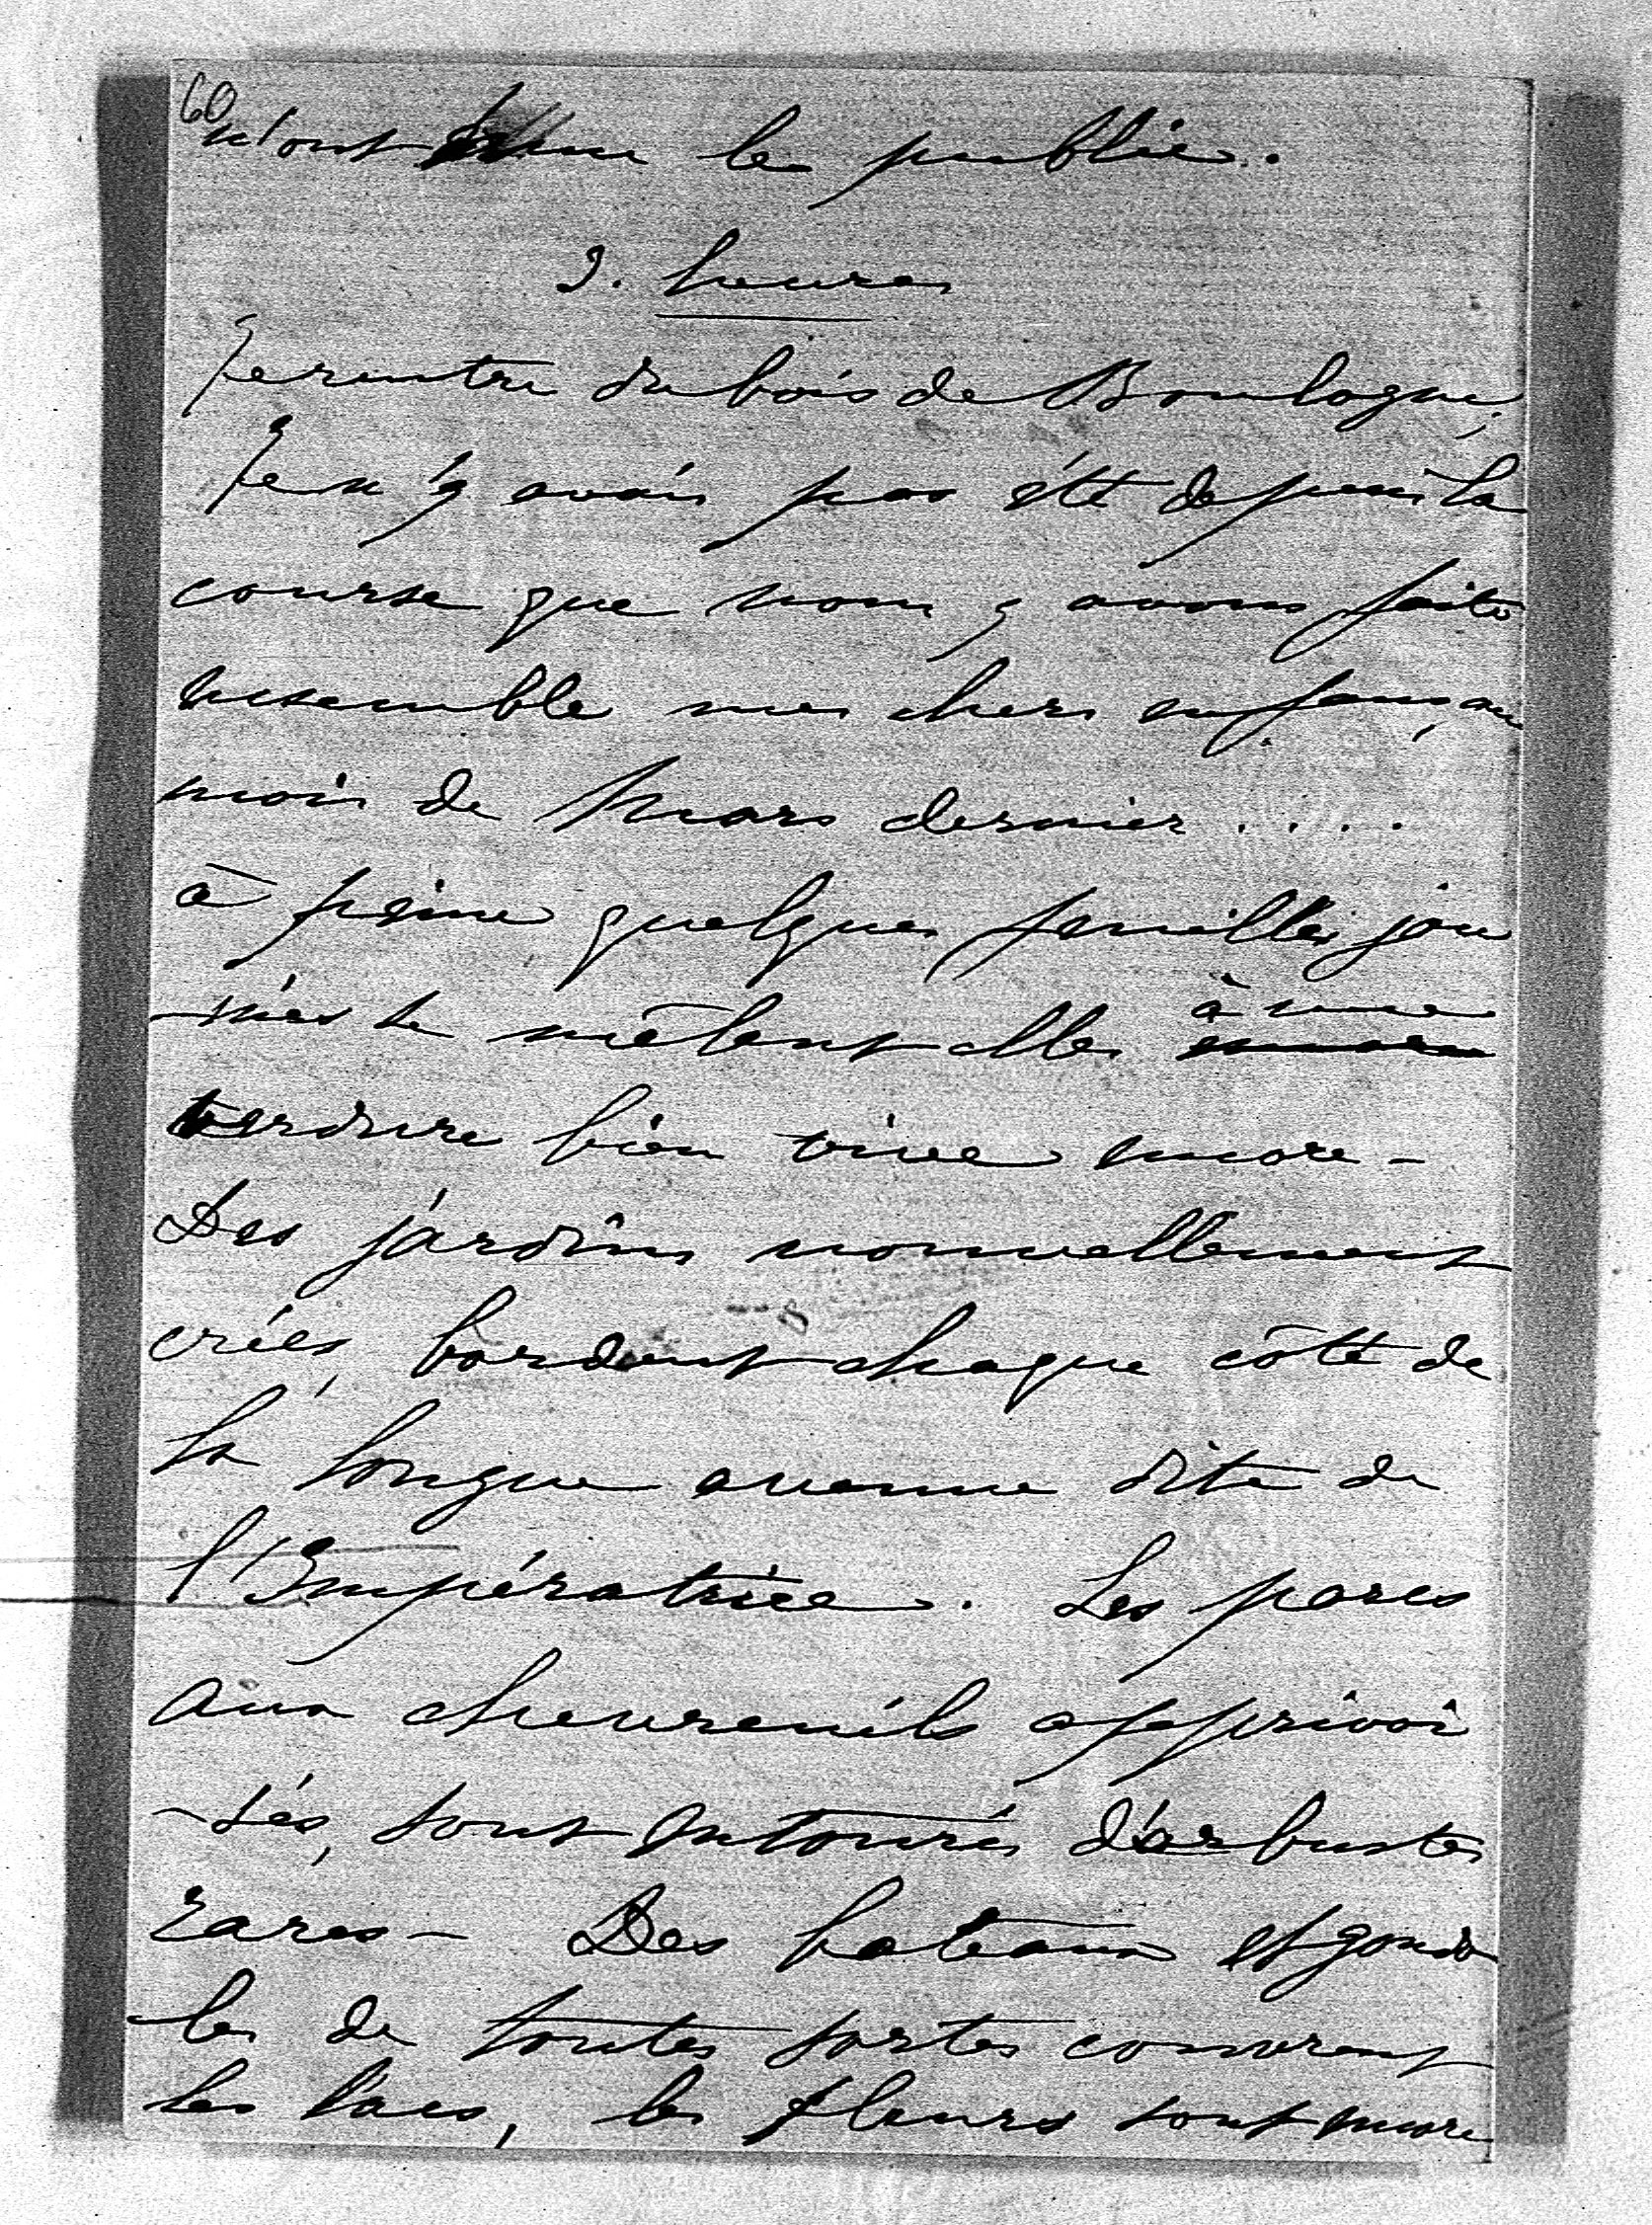 60
n'ont le public.
9. heures
Je rentre du bois de Boulogne,
Je n'y avais pas été depuis la
course que nous y avons faite
ensemble mes chers enfans, au
mois de Mars dernier ....
à peine quelques feuilles jau
-nies se mêlent elles à une
verdure bien vive encore -
Des jardins nouvellement
créés, bordent chaque côté de
la longue avenue dite de
l'Impératrice. Les parcs
aux chevreuils apprivoi
-sés, sont entourés d'arbustes
rares - Des bateaux et gondo
-les de toutes sortes couvrent
les lacs, les fleurs sont encore